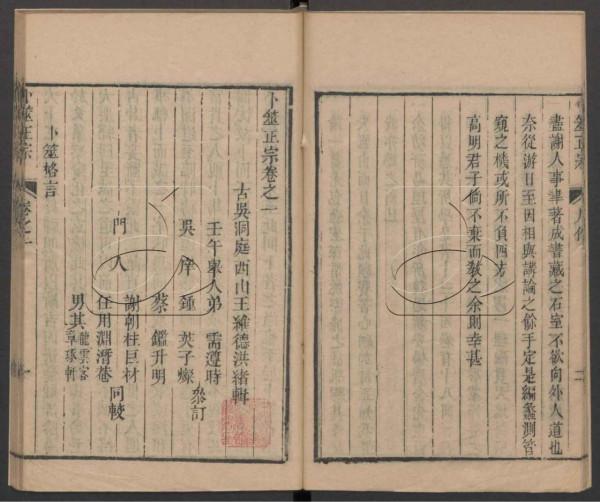 盡謝人事聿著成書藏之石室不欲向外人道也
奈從游日至因相與講論之餘手定是編蠡測管
窺之機或所不負四方
高明君子倘不棄而教之余則幸甚
卜筮正宗 凡例
二
卜筮正宗卷之一
古吳洞庭西山王維德洪緒輯
壬午舉人弟 需遵時
吳庠 鍾英子燦 叅訂
蔡 鑑升明
門人 謝朝柱巨材
任用淵潛菴 同較
男其龍雲客
章琢軒
卜筮格言
卜筮正宗 卷之一
一